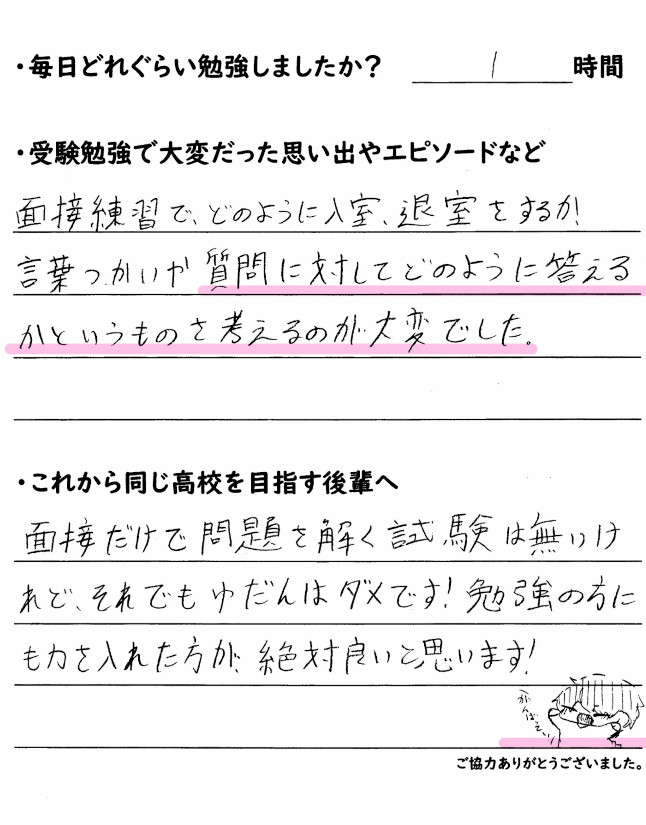 ・毎日どれぐらい勉強しましたか？ 1 時間
・受験勉強で大変だった思い出やエピソードなど
面接練習で、どのように入室、退室をするか!
言葉づかいや質問に対してどのように答える
かというものを考えるのが大変でした。
・これから同じ高校を目指す後輩へ
面接だけで問題を解く試験は無いけ
れど、それでもゆだんはダメです!勉強の方に
も力を入れた方が、絶対良いと思います!
ご協力ありがとうございました。